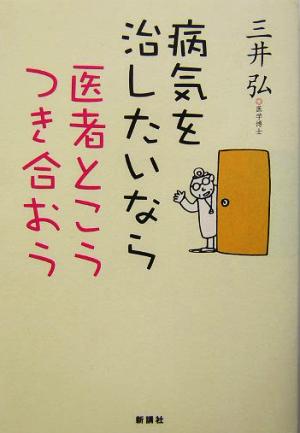 病気を
治したいなら
医者とこう
つき合おう
三井弘
医学博士
新講社